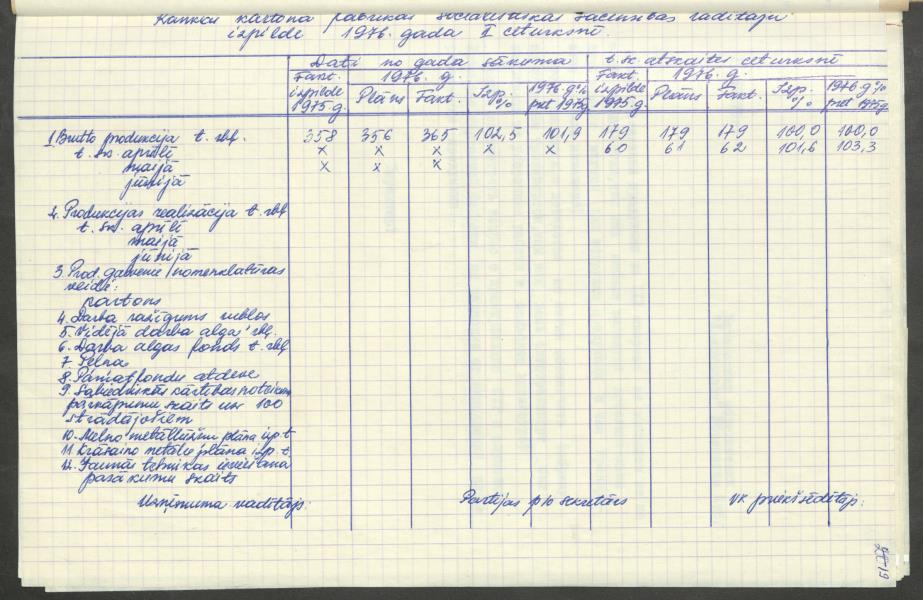 Rankas kartona fabrikas sociālistiskās sacensības rādītāju
izpilde 1976. gada II ceturksnī.
Dati no gada sākuma t. sk. atskaites ceturksnī
Fakt. izpilde 1975. g. 1976. g. Fakt. izpilde 1975. g. 1976. g.
Plāns Fakt. Izp. % 1976. g. % pret 1975 g Plāns Fakt. Izp. % 1976 g % pret 1975 g
1. Brutto produkcija t. rbļ. 358 356 365 102,5 101,9 179 179 179 100,0 100,0
t. sk. aprīlī x x x x x 60 61 62 101,6 103,3
maijā x x x
jūnijā
2. Produkcijas realizācija t. rbļ
t. sk. aprīlī
maijā
jūnijā
3. Prod. galvenie nomenklatūras
veidi:
kartons
4. Darba ražīgums rubļos
5. Vidējā darba alga rbļ.
6. Darba algas fonds t. rbļ
7. Peļņa
8. Pamatfondu atdeve
9. Sabiedriskās kārtības noteikumu
pārkāpumu skaits uz 100
strādājošiem
10. Melno metāllūžņu plāna izp. t
11. Krāsaino metālu plāna izp. t.
12. Jaunās tehnikas ieviešana
pasākumu skaits
Uzņēmuma vadītājs: Partijas p/o sekretārs VK priekšsēdētājs: